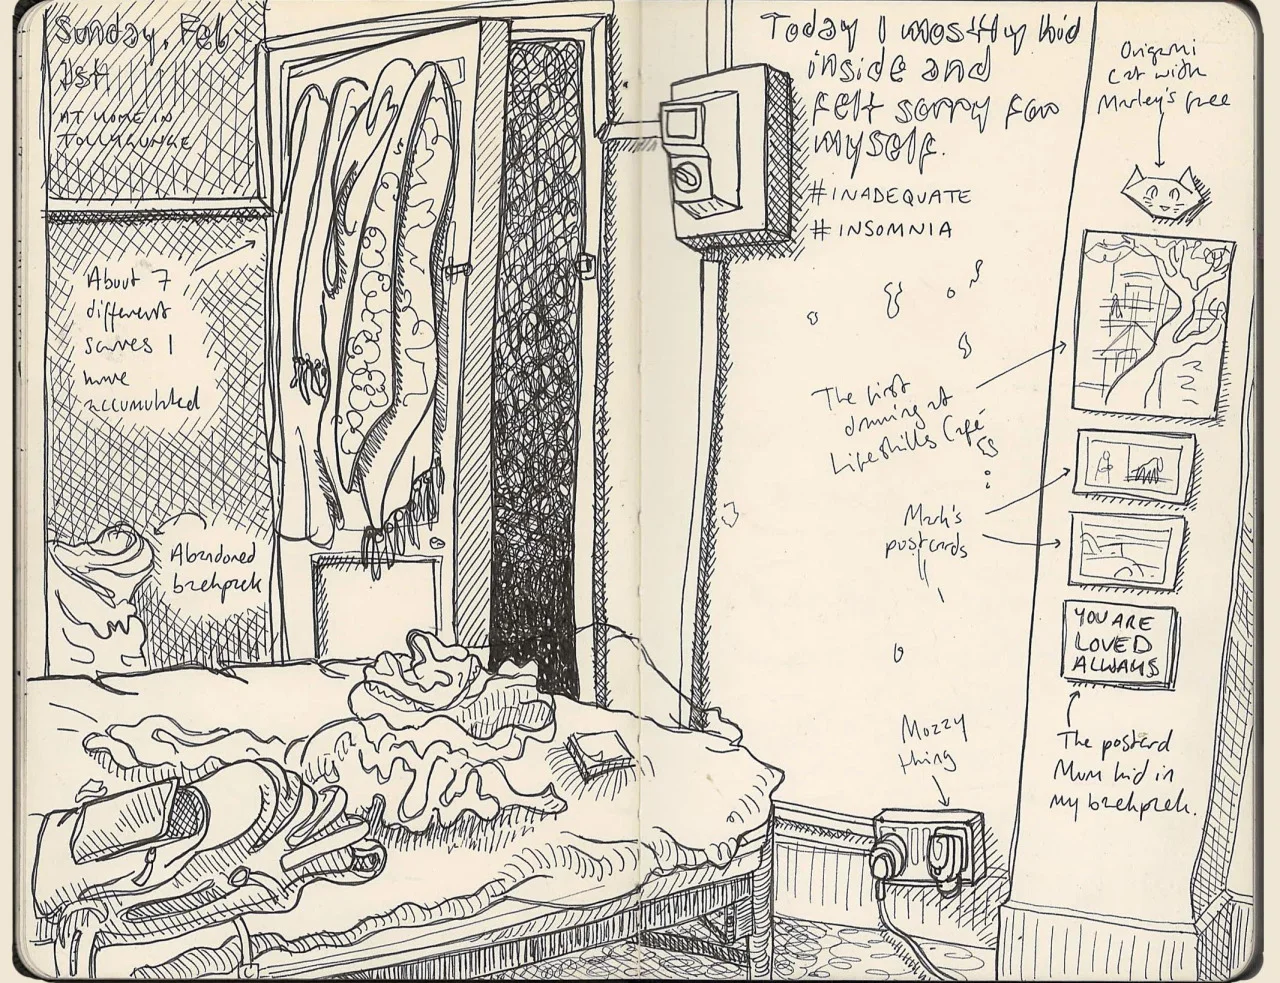 Sunday, Feb
1st
AT HOME IN
TOLLYGUNGE
About 7
different
scarves I
have
accumulated
Abandoned
backpack
Today I mostly hid
inside and
felt sorry for
myself.
#INADEQUATE
#INSOMNIA
The first
drawing at
Lifeskills Café
Mark's
postcards
Mozzy
thing
Origami
cat with
Marley's face
YOU ARE
LOVED
ALWAYS
The postcard
Mum hid in
my backpack.